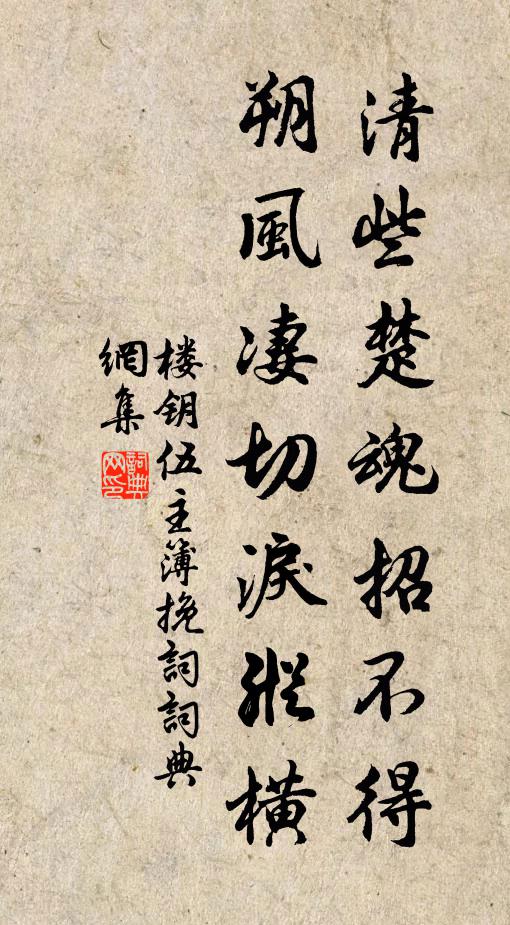 清些楚魂招不得
朔風凄切淚縱橫
楼钥伍主簿挽詞詞典
網集
詞典網印